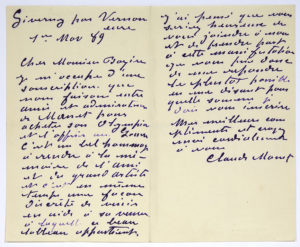 Giverny par Vernon
Eure
1er Nov 89
Cher Monsieur Bazire
Je m'occupe d'une
souscription que
nous faisons entre
amis et admirateurs
de Manet pour
acheter son Olympia
et l'offrir au Louvre
C'est un bel hommage
à rendre à la mé-
moire de l'ami
et du grand artiste
et c'est en même
temps une façon
discrète de venir
en aide à sa veuve
à laquelle ce beau
tableau appartient.
J'ai pensé que vous
seriez heureux de
vous joindre à nous
et de prendre part
à cette manifestation
que vous prie donc
de me répondre
le plus tôt possible
en me disant pour
quelle somme je
dois vous inscrire
Mes meilleurs com
pliments et croyez
moi cordialement
à vous
Claude Monet